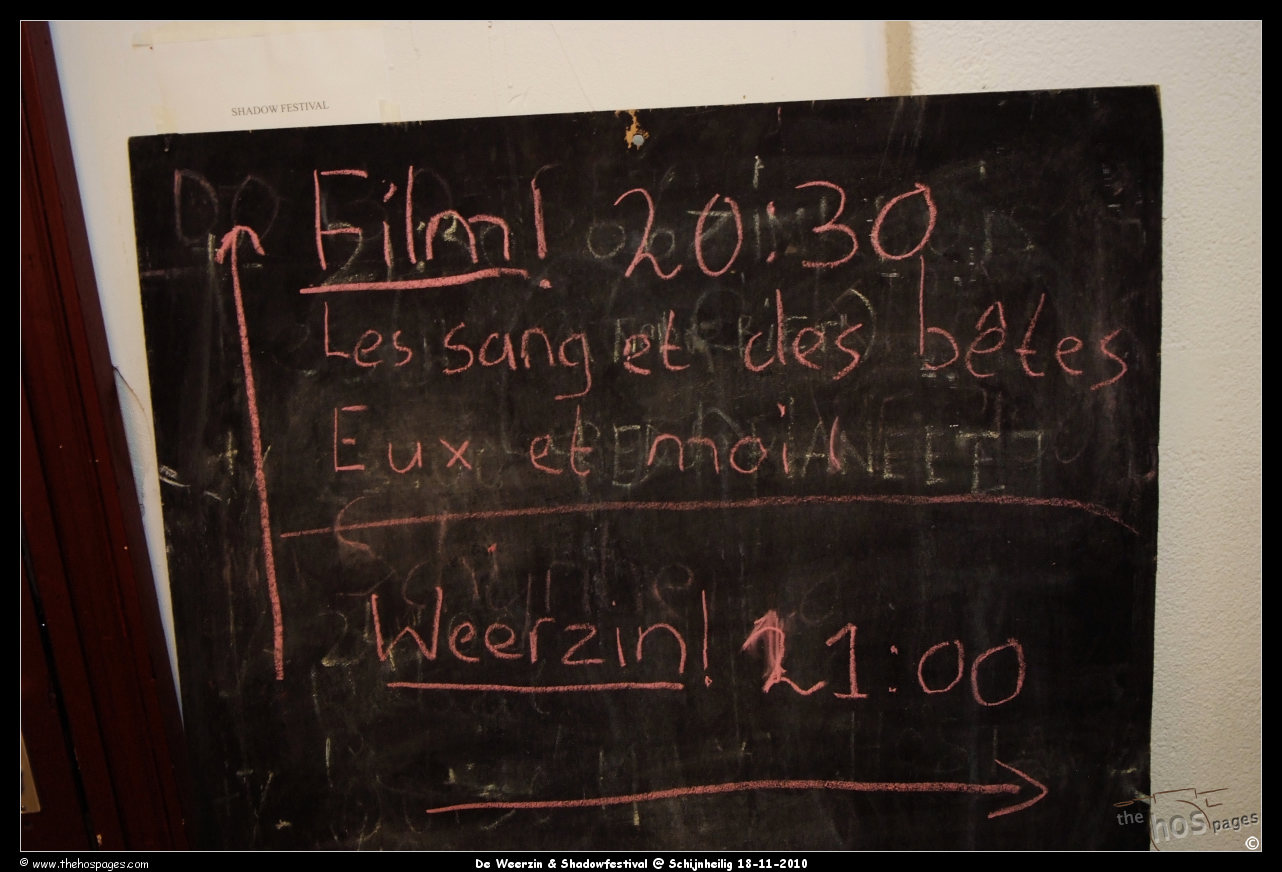 SHADOW FESTIVAL
Film! 20:30
Les sang et des bêtes
Eux et moi!
Weerzin! 21:00
the hos pages
©
© www.thehospages.com
De Weerzin & Shadowfestival @ Schijnheilig 18-11-2010